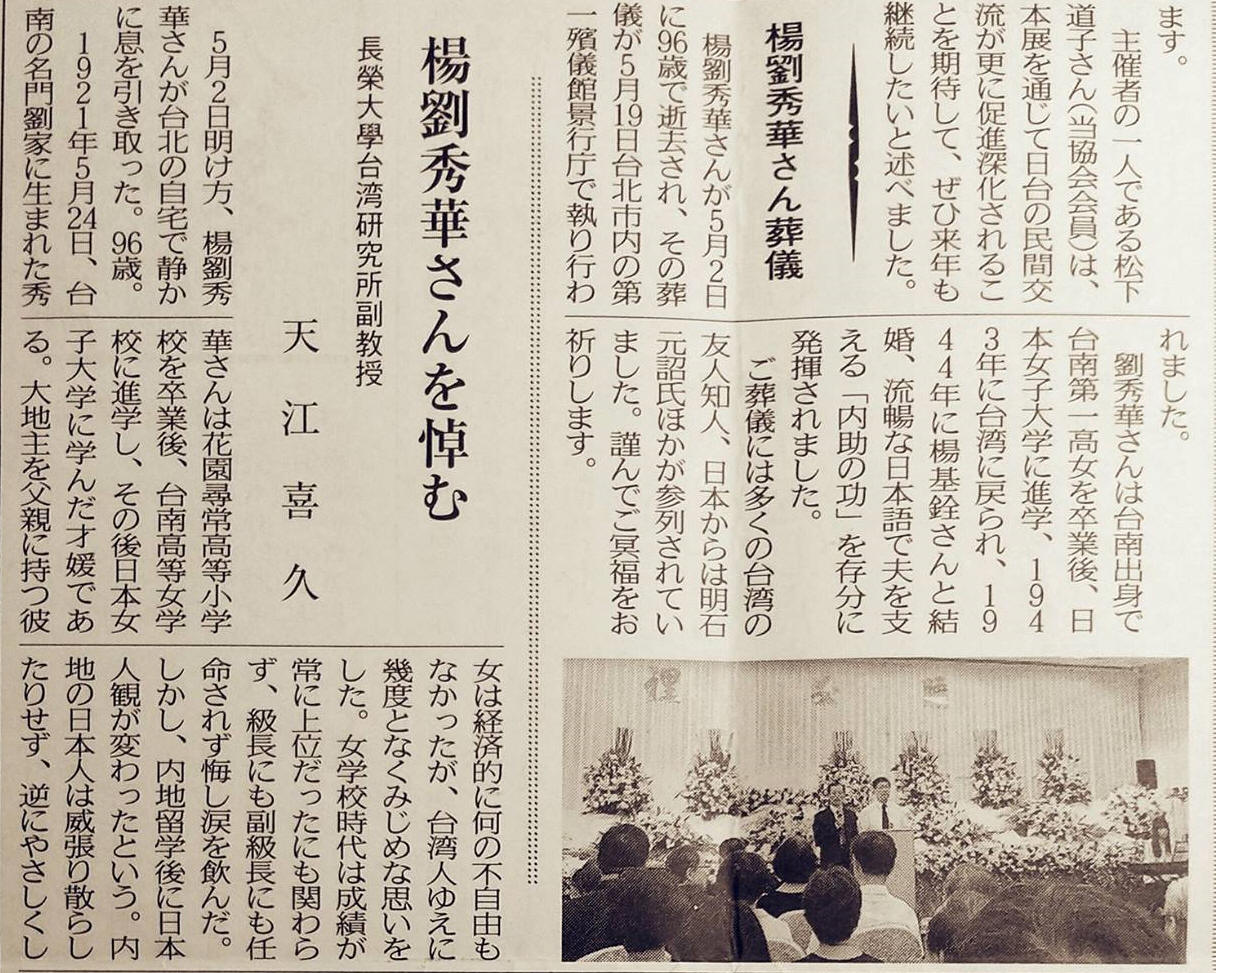 ます。
主催者の一人である松下
道子さん（当協会会員）は、
本展を通じて日台の民間交
流が更に促進深化されるこ
とを期待して、ぜひ来年も
継続したいと述べました。
楊劉秀華さん葬儀
楊劉秀華さんが5月2日
に96歳で逝去され、その葬
儀が5月19日台北市内の第
一殯儀館景行庁で執り行わ
れました。
劉秀華さんは台南出身で
台南第一高女を卒業後、日
本女子大学に進学、194
3年に台湾に戻られ、19
44年に楊基銓さんと結
婚、流暢な日本語で夫を支
える「内助の功」を存分に
発揮されました。
ご葬儀には多くの台湾の
友人知人、日本からは明石
元詔氏ほかが参列されてい
ました。謹んでご冥福をお
祈りします。
楊劉秀華さんを悼む
長榮大學台湾研究所副教授
天江喜久
5月2日明け方、楊劉秀
華さんが台北の自宅で静か
に息を引き取った。96歳。
1921年5月24日、台
南の名門劉家に生まれた秀
華さんは花園尋常高等小学
校を卒業後、台南高等女学
校に進学し、その後日本女
子大学に学んだ才媛であ
る。大地主を父親に持つ彼
女は経済的に何の不自由も
なかったが、台湾人ゆえに
幾度となくみじめな思いを
した。女学校時代は成績が
常に上位だったにも関わら
ず、級長にも副級長にも任
命されず悔し涙を飲んだ。
しかし、内地留学後に日本
人観が変わったという。内
地の日本人は威張り散らし
たりせず、逆にやさしくし